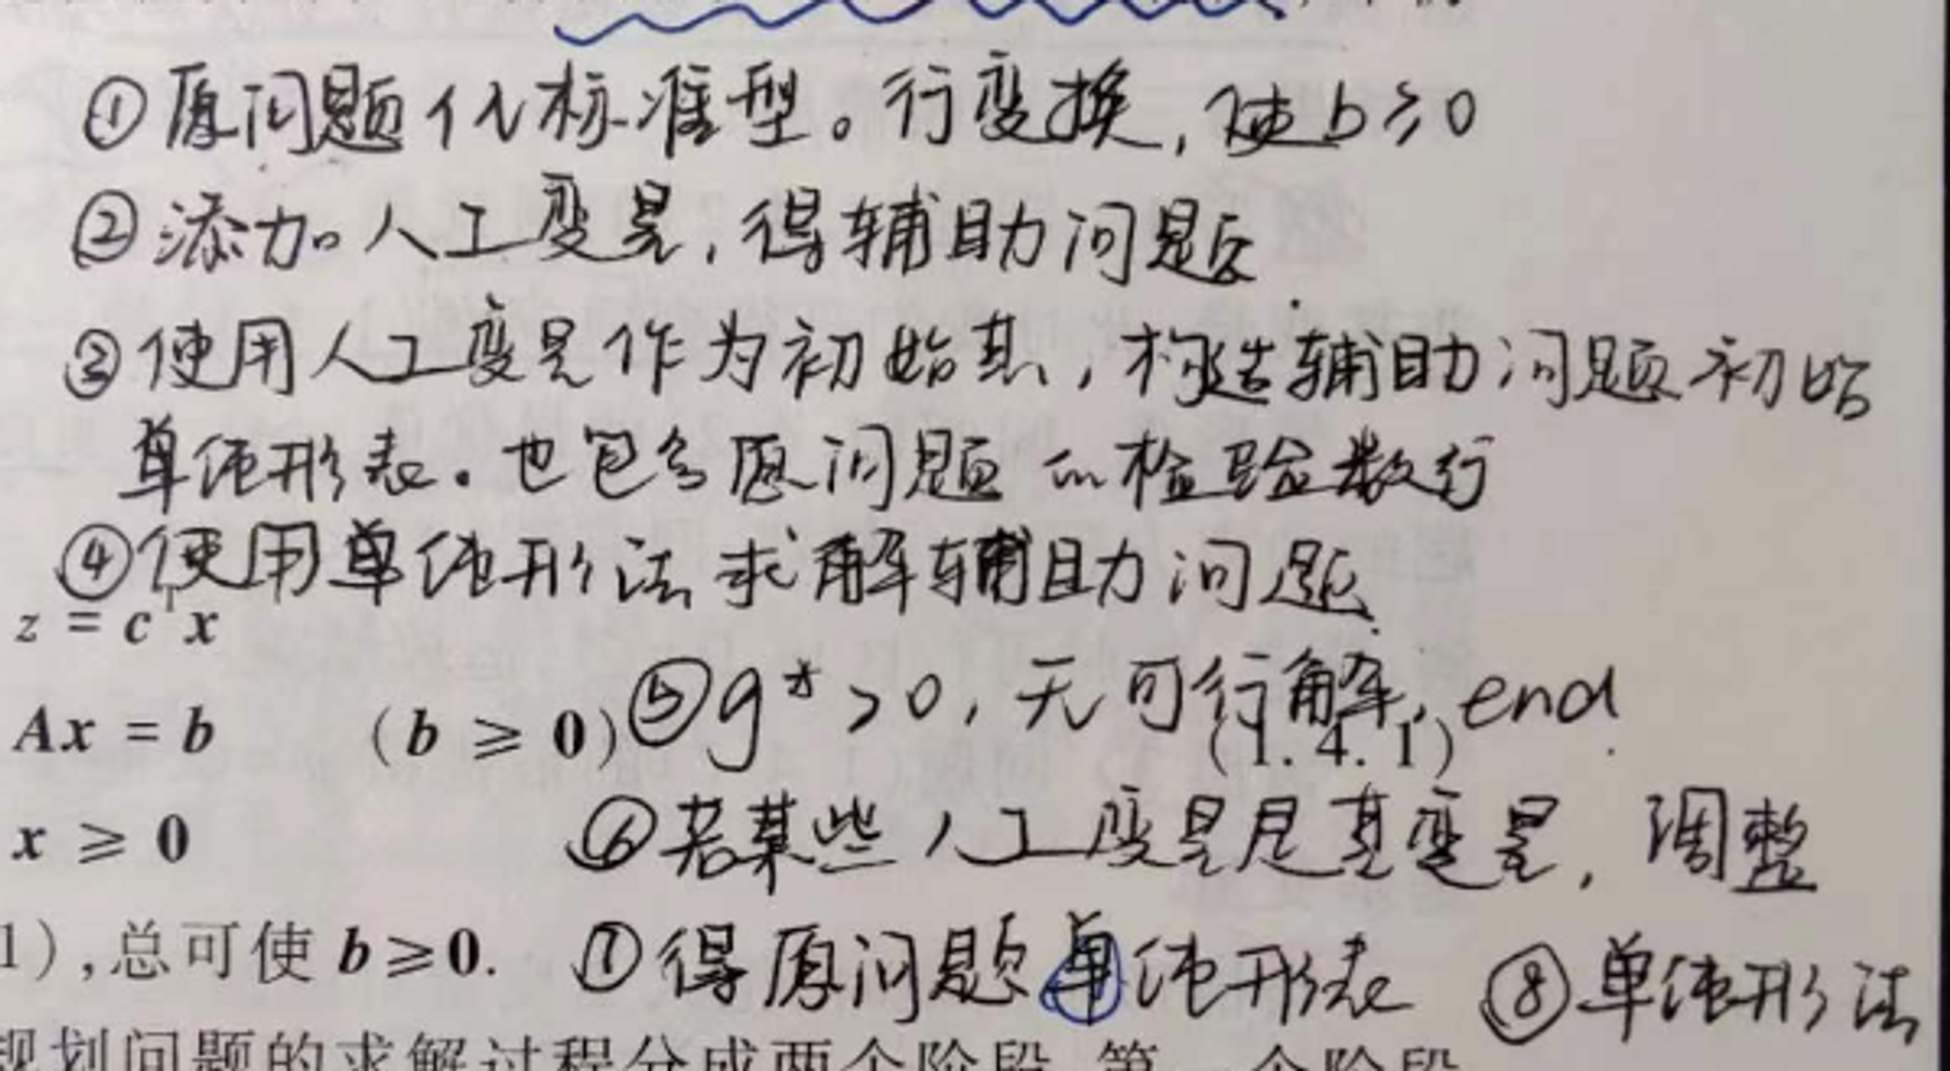 ①原问题化标准型。行变换，使b≥0
②添加人工变量，得辅助问题.
③使用人工变量作为初始基，构造辅助问题初始
单纯形表。也包含原问题的检验数行
④使用单纯形法求解辅助问题.
z = cᵀx
⑤g*>0，无可行解，end.
Ax = b (b ≥ 0) (1.4.1)
⑥若某些人工变量是基变量，调整
x ≥ 0
1),总可使 b≥0. ⑦得原问题单纯形表 ⑧单纯形法
规划问题的求解过程分成两个阶段 第一个阶段